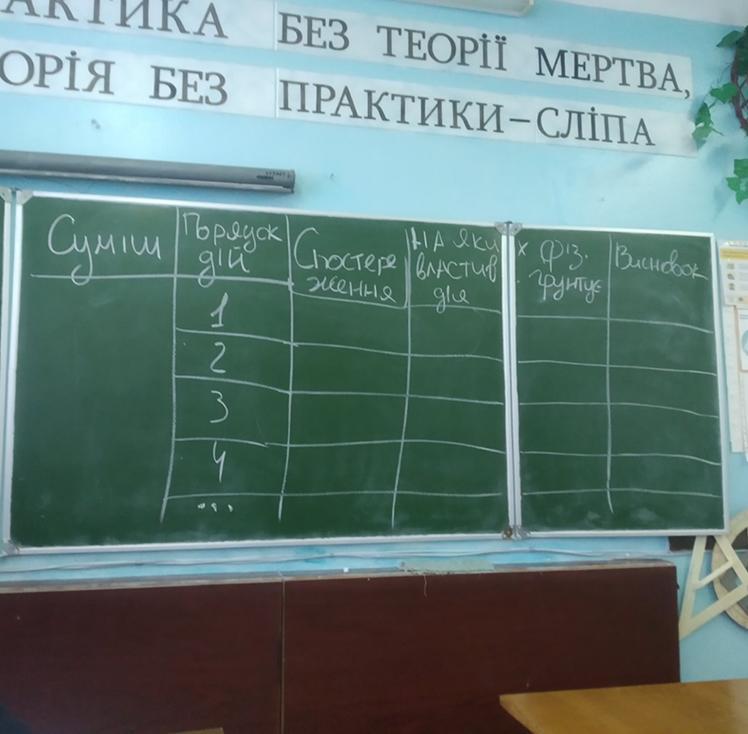 АКТИКА БЕЗ ТЕОРІЇ МЕРТВА,
ОРІЯ БЕЗ ПРАКТИКИ – СЛІПА
Суміш
Порядок
дій
Спостере
ження
НА ЯКИ
властив
дія
х фіз.
грунтує
Висновок
1
2
3
4
...